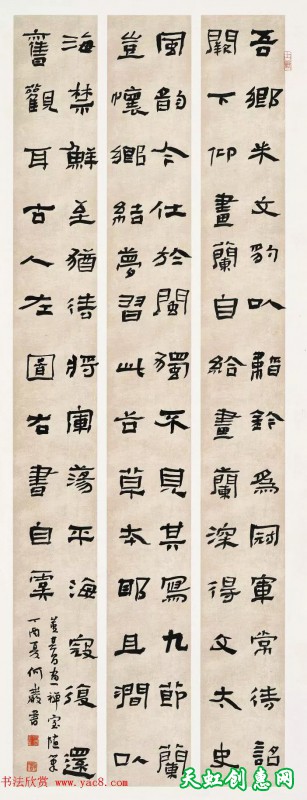 吾鄉米文豹以韜鈐為冠軍常待詔
闕下仰畫蘭自給畫蘭深得文太史
風韵今仕於閩獨不見其寫九節蘭
豈懷鄉結夢習此草本耶且澗以
海禁鮮至猶待將軍蕩平海寇復還
舊觀耳古人左圖右書自虞
董其昌畫禪室隨筆
丙夏何書
书法欣赏
www.yac8.com
天虹创意网